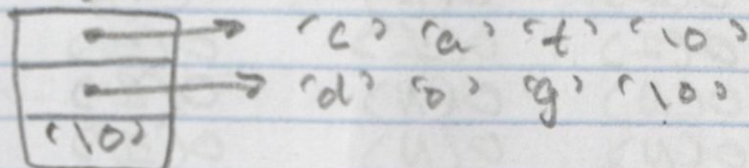 'c' 'a' 't' '\0'
'd' 'o' 'g' '\0'
'\0'